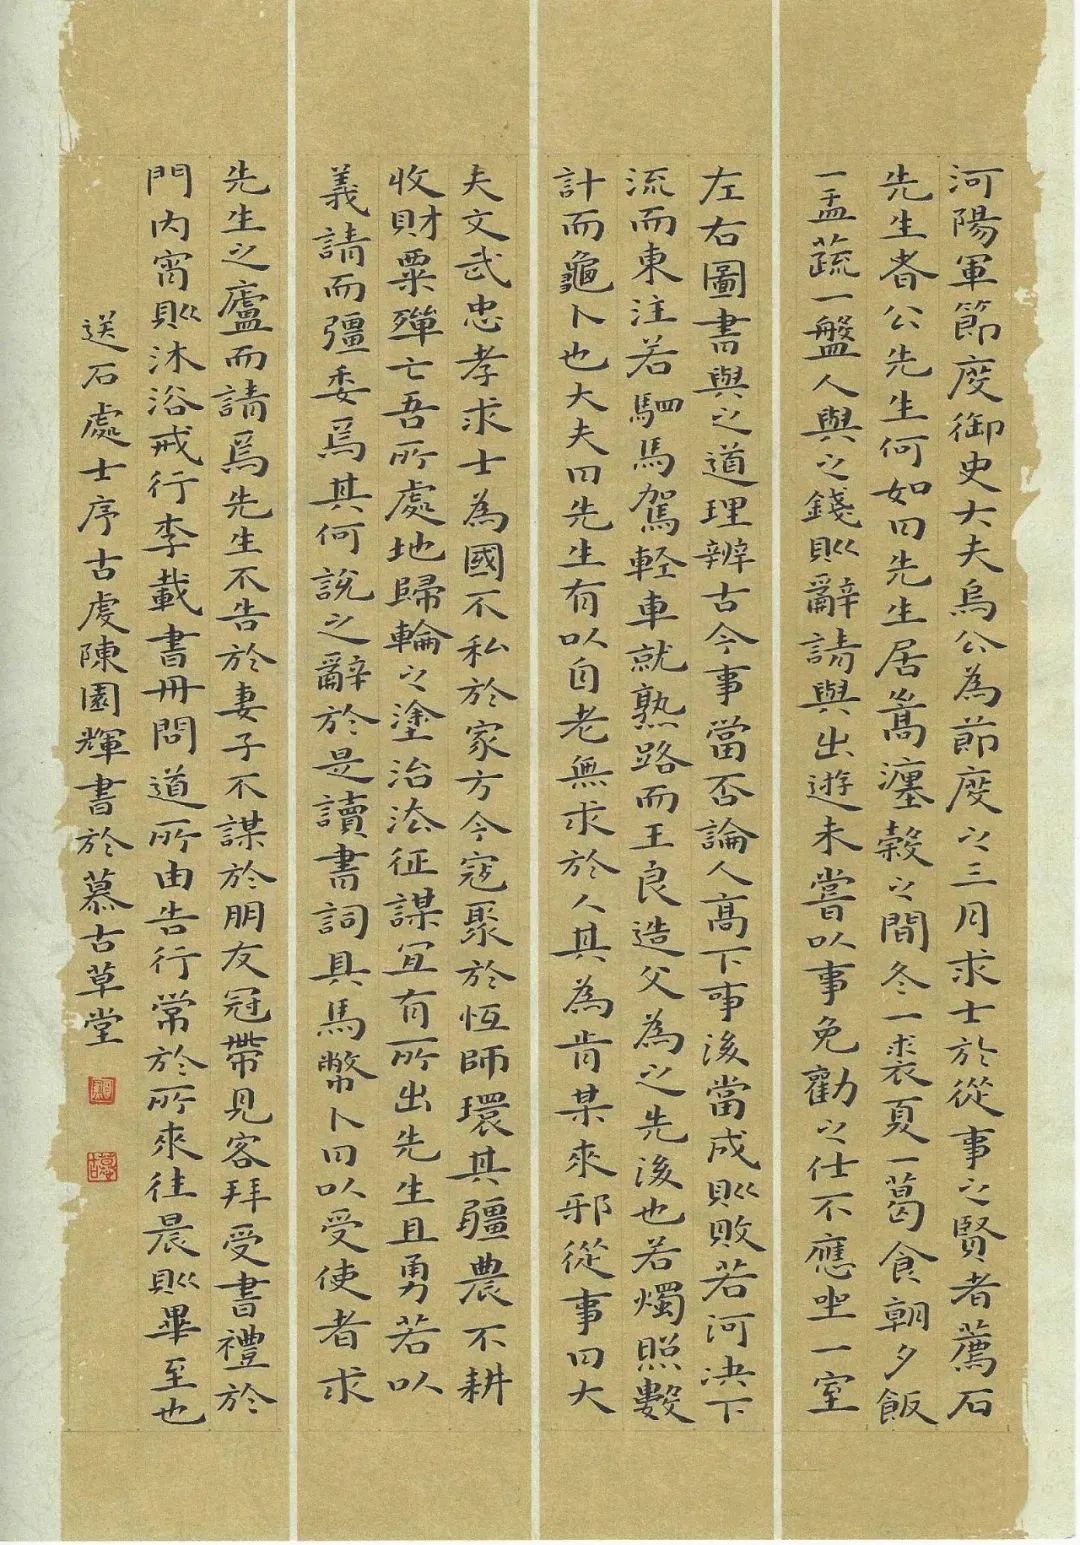 河陽軍節度御史大夫烏公為節度之三月求士於從事之賢者薦石
先生者公先生何如曰先生居嵩瀍穀之間冬一裘夏一葛食朝夕飯
一盂蔬一盤人與之錢則辭請與出遊未嘗以事免勸之仕不應坐一室
左右圖書與之道理辨古今事當否論人高下事後當成則敗若河決下
流而東注若駟馬駕輕車就熟路而王良造父為之先後也若燭照數
計而龜卜也大夫曰先生有以自老無求於人其為肯某來邪從事曰大
夫文武忠孝求士為國不私於家方今寇聚於恆師環其疆農不耕
收財粟殫亡吾所處地歸輸之塗治法征謀宜有所出先生且勇若以
義請而彊委焉其何說之辭於是讀書詞具馬幣卜曰以受使者求
先生之廬而請焉先生不告於妻子不謀於朋友冠帶見客拜受書禮於
門內宵則沐浴戒行李載書冊問道所由告行常於所來往晨則畢至也
送石處士序古虔陳園輝書於慕古草堂